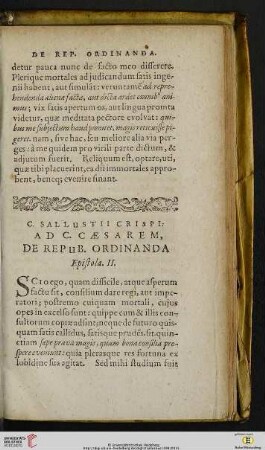 DE REP. ORDINANDA.
detur pauca nunc de facto meo disserere.
Plerique mortales ad judicandum satis inge-
nii habent, aut simulāt: verum ad repre-
hendenda aliena facta, aut dicta ardet omnib' ani-
mus; vix satis apertum os, aut lingua promta
videtur, quæ meditata pectore evolvat: quibus
me subjectum haud pœnitet, magis reticuisse pi-
geret. nam, sive hac, seu meliore alia via per-
ges: à me quidem pro virili parte dictum, &
adjutum fuerit. Reliquum est, optare, uti,
quæ tibi placuerint, ea dii immortales appro-
bent, beneq; evenire sinant.
C. SALLUSTII CRISPI:
AD C. CÆSAREM,
DE REPUB. ORDINANDA
Epistola. II.
SCio ego, quam difficile, atque asperum
factu sit, consilium dare regi, aut impe-
ratori; postremo cuiquam mortali, cujus
opes in excelso sunt: quippe cum & illis con-
sultorum copiæ adsint; neque de futuro quis-
quam satis callidus, satisque prudēs sit. quin-
etiam sæpe prava magis, quam bona consilia pro-
spere eveniunt: quia plerasque res fortuna ex
lubidine sua agitat. Sed mihi studium fuit